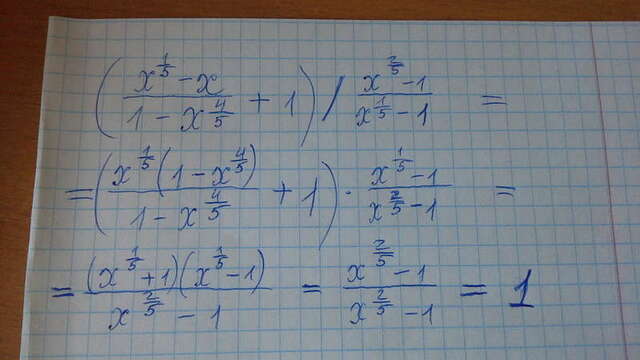 (x^(1/5) - x / 1 - x^(4/5) + 1) / x^(2/5) - 1 / x^(1/5) - 1 =
= (x^(1/5) (1 - x^(4/5)) / 1 - x^(4/5) + 1) · x^(1/5) - 1 / x^(2/5) - 1 =
= (x^(1/5) + 1) (x^(1/5) - 1) / x^(2/5) - 1 = x^(2/5) - 1 / x^(2/5) - 1 = 1